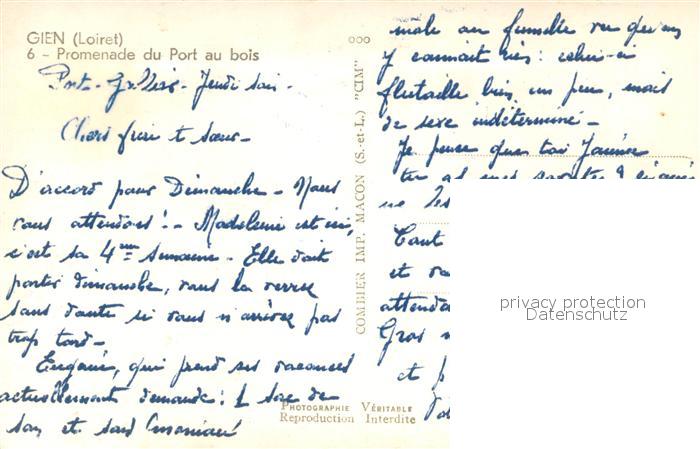 GIEN (Loiret)
6 - Promenade du Port au bois
Jeudi soir -
Chers frère et sœur -
D'accord pour Dimanche - Nous
vous attendons! - Madeleine est ici,
c'est sa 4ème semaine - Elle doit
partir dimanche, vous la verrez
sans doute si vous n'arrivez pas
trop tard -
Eugénie, qui prend ses vacances
actuellement demande: 1 sac de
son et
COMBIER IMP. MACON (S.-et-L.) "CIM"
PHOTOGRAPHIE VÉRITABLE
Reproduction Interdite
mâle ou femelle vu qu'on
y connait rien: celui-ci
flutaille bien un peu, mais
de sexe indéterminé -
Je pense que toi Janine
tu as
ne
Tant
et
attenda
Gros
et
privacy protection
Datenschutz